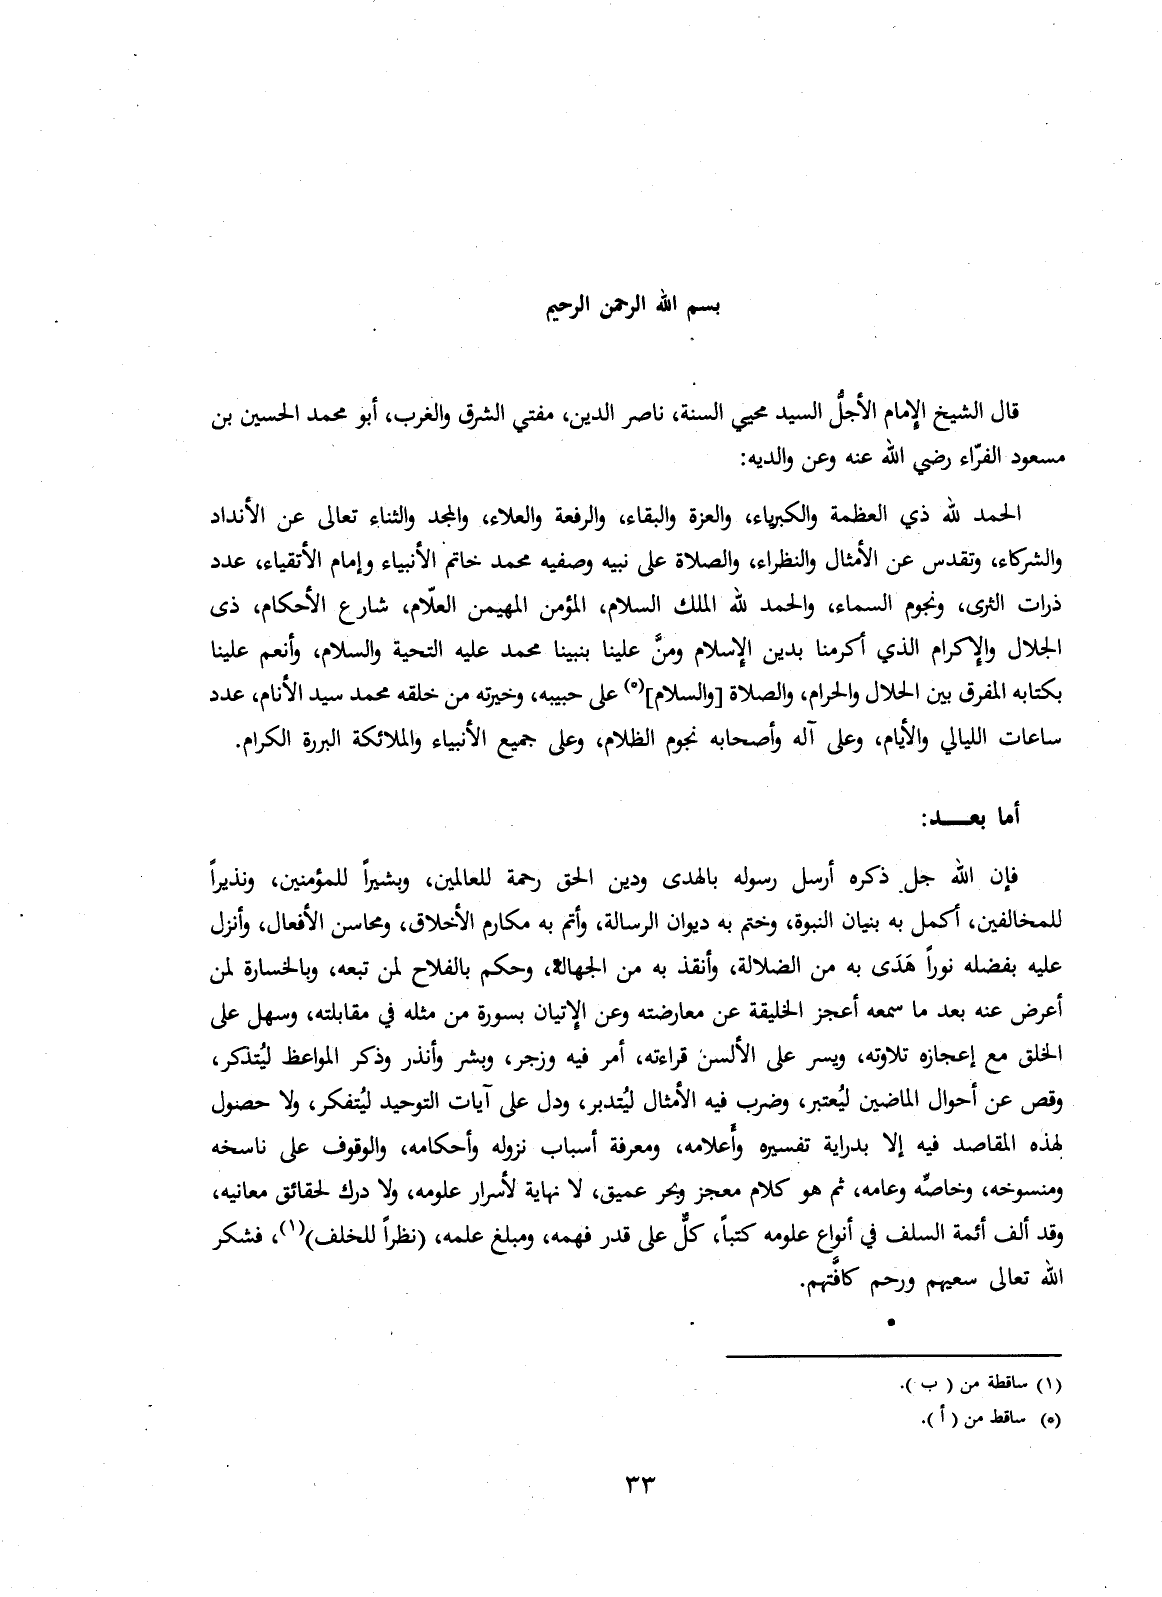 بسم الله الرحمن الرحيم
قال الشيخ الإمام الأجلُّ السيد محيي السنة، ناصر الدين، مفتي الشرق والغرب، أبو محمد الحسين بن
مسعود الفرّاء رضي الله عنه وعن والديه:
الحمد لله ذي العظمة والكبرياء، والعزة والبقاء، والرفعة والعلاء، والمجد والثناء تعالى عن الأنداد
والشركاء، وتقدس عن الأمثال والنظراء، والصلاة على نبيه وصفيه محمد خاتم الأنبياء وإمام الأتقياء، عدد
ذرات الثرى، ونجوم السماء، والحمد لله الملك السلام، المؤمن المهيمن العلّام، شارع الأحكام، ذى
الجلال والإكرام الذي أكرمنا بدين الإسلام ومنَّ علينا بنبينا محمد عليه التحية والسلام، وأنعم علينا
بكتابه المفرق بين الحلال والحرام، والصلاة [والسلام](٥) على حبيبه، وخيرته من خلقه محمد سيد الأنام، عدد
ساعات الليالي والأيام، وعلى آله وأصحابه نجوم الظلام، وعلى جميع الأنبياء والملائكة البررة الكرام.
أما بعـــد:
فإن الله جل ذكره أرسل رسوله بالهدى ودين الحق رحمة للعالمين، وبشيراً للمؤمنين، ونذيراً
للمخالفين، أكمل به بنيان النبوة، وختم به ديوان الرسالة، وأتم به مكارم الأخلاق، ومحاسن الأفعال، وأنزل
عليه بفضله نوراً هَدَى به من الضلالة، وأنقذ به من الجهالة، وحكم بالفلاح لمن تبعه، وبالخسارة لمن
أعرض عنه بعد ما سمعه أعجز الخليقة عن معارضته وعن الإتيان بسورة من مثله في مقابلته، وسهل على
الخلق مع إعجازه تلاوته، ويسر على الألسن قراءته، أمر فيه وزجر، وبشر وأنذر وذكر المواعظ ليُتذكر،
وقص عن أحوال الماضين ليُعتبر، وضرب فيه الأمثال ليُتدبر، ودل على آيات التوحيد ليُتفكر، ولا حصول
لهذه المقاصد فيه إلا بدراية تفسيره وأَعلامه، ومعرفة أسباب نزوله وأحكامه، والوقوف على ناسخه
ومنسوخه، وخاصّه وعامه، ثم هو كلام معجز وبحر عميق، لا نهاية لأسرار علومه، ولا درك لحقائق معانيه،
وقد ألف أئمة السلف في أنواع علومه كتباً، كلٌّ على قدر فهمه، ومبلغ علمه، (نظراً للخلف)(١)، فشكر
الله تعالى سعيهم ورحم كافَّتهم.
(١) ساقطة من ( ب ).
(٥) ساقط من ( أ ).
٣٣